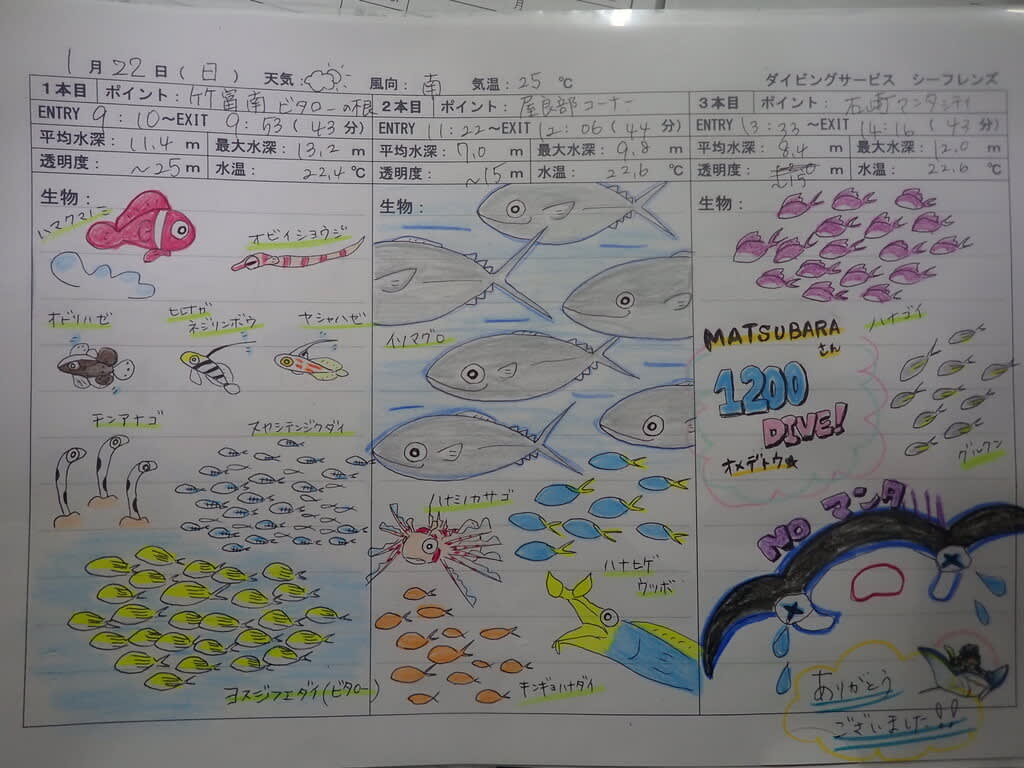 1月22日(日) 天気: 風向:南 気温:25℃ ダイビングサービス シーフレンズ
1本目 ポイント:竹富南 ビタローの根
ENTRY 9:10~EXIT 9:53(43分)
平均水深:11.4m 最大水深:13.2m
透明度:~25m 水温:22.4℃
生物:
ハマクマノミ
オビイショウジ
オドリハゼ
ヒレナガ
ネジリンボウ
ヤシャハゼ
チンアナゴ
スカシテンジクダイ
ヨスジフエダイ(ビタロー)
2本目 ポイント:屋良部コーナー
ENTRY 11:22~EXIT 12:06(44分)
平均水深:7.0m 最大水深:9.8m
透明度:~15m 水温:22.6℃
生物:
イソマグロ
ハナミカサゴ
ハナヒゲ
ウツボ
キンギョハナダイ
3本目 ポイント:石崎マンタシティ
ENTRY 13:33~EXIT 14:16(43分)
平均水深:8.4m 最大水深:12.0m
透明度:~15m 水温:22.6℃
生物:
ハナゴイ
MATSUBARA
さん
1200
DIVE!
オメデトウ★
グルクン
NO マンタ
ありがとう
ございました!!